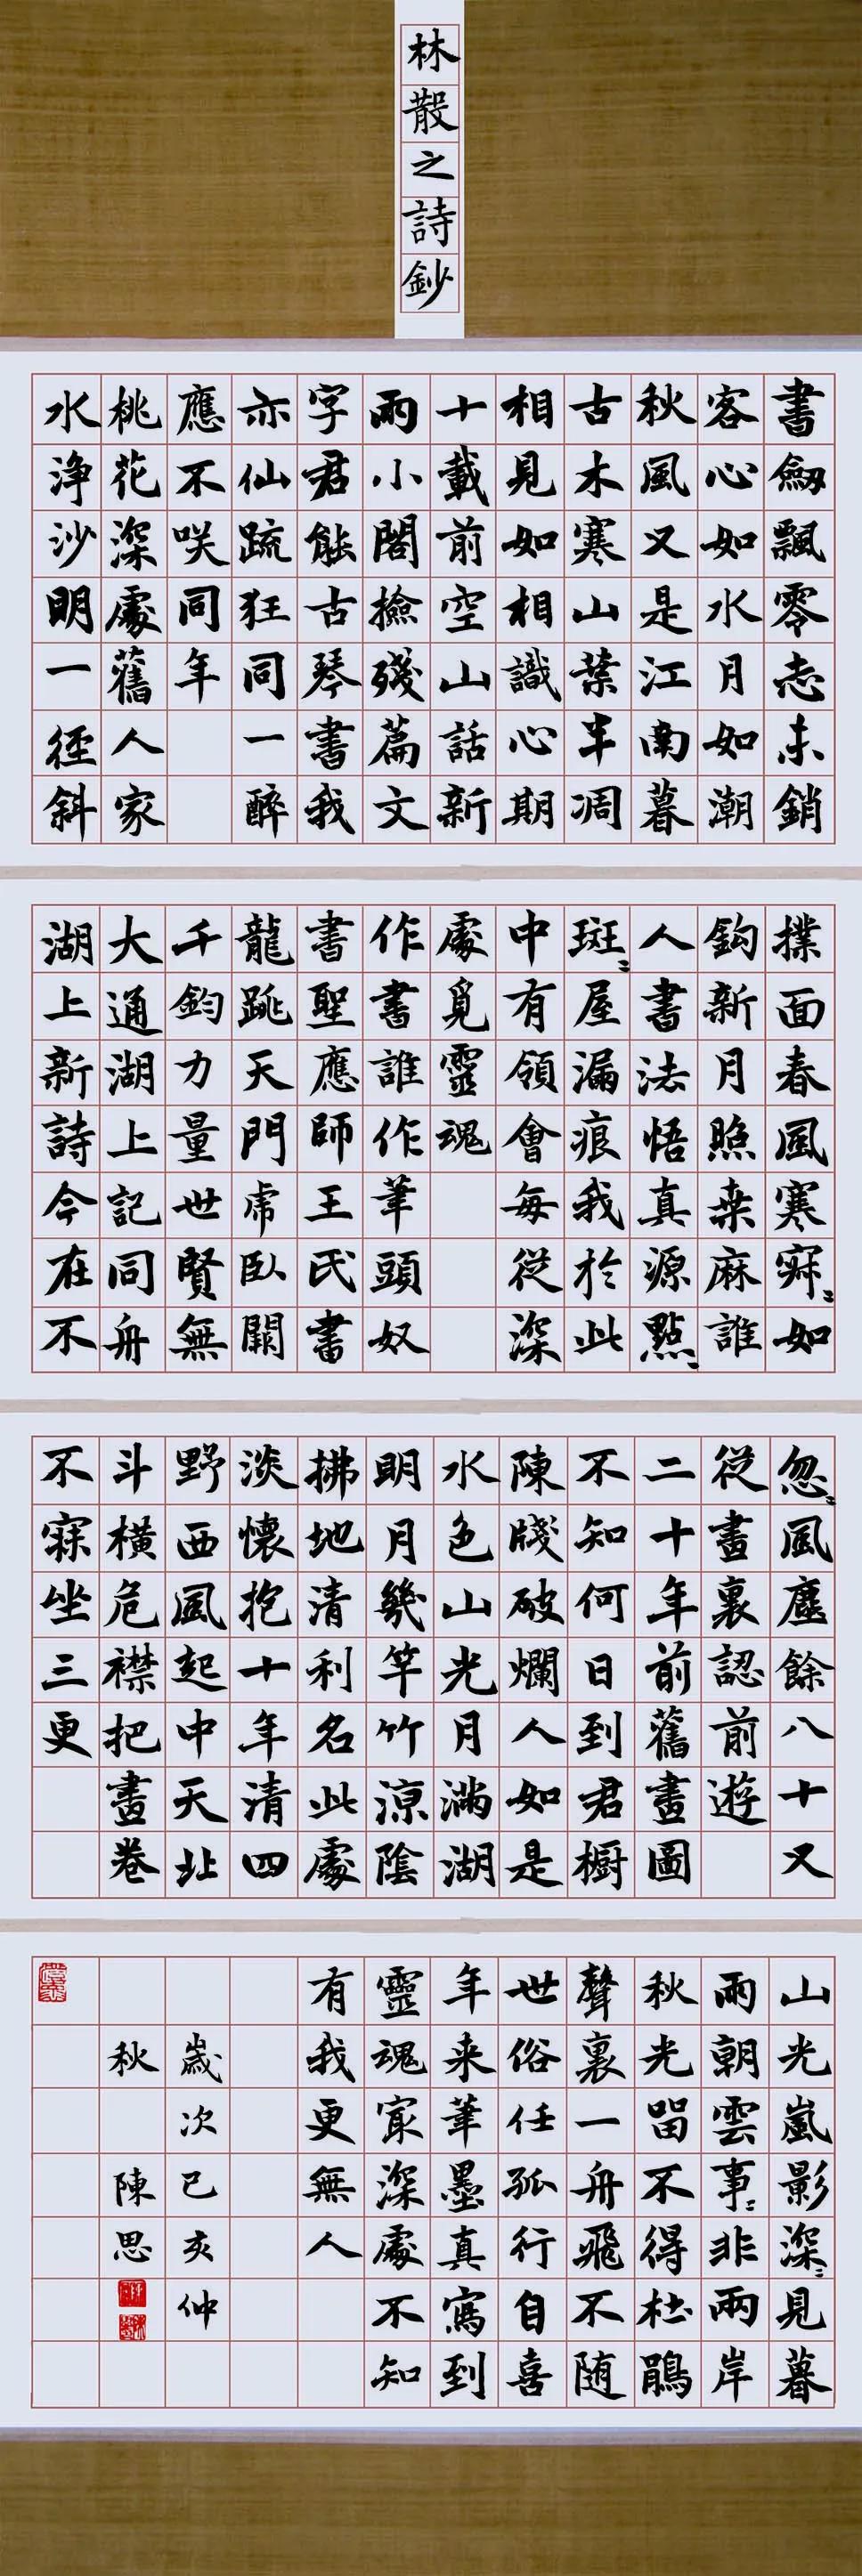 林散之詩鈔
書劔飄零志未銷
客心如水月如潮
秋風又是江南暮
古木寒山葉半凋
相見如相識心期
十載前空山話新
雨小閣撿殘篇文
字君能古琴書我
亦仙疏狂同一醉
應不咲同年
桃花深處舊人家
水浄沙明一徑斜
撲面春風寒寂〻如
鈎新月照桒麻誰
人書法悟真源點〻
斑〻屋漏痕我於此
中有領會每從深
處覓靈魂
作書誰作筆頭奴
書聖應師王氏書
龍跳天門虎臥闕
千鈞力量世賢無
大通湖上記同舟
湖上新詩今在不
忽〻風塵餘八十又
從畫裏認前遊
二十年前舊畫圖
不知何日到君橱
陳牋破爛人如是
水色山光月滿湖
明月幾竿竹涼陰
拂地清利名此處
淡懷抱十年清四
野西風起中天北
斗橫危襟把畫卷
不寐坐三更
山光嵐影深〻見暮
雨朝雲事〻非兩岸
秋光留不得杜鵑
聲裏一舟飛不随
世俗任孤行自喜
年来筆墨真寫到
靈魂寂深處不知
有我更無人
歲次已亥仲
秋 陳思